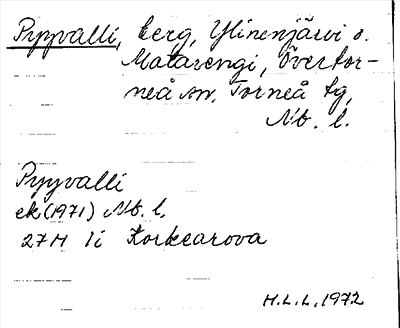 Pyyvalli, berg, Ylinenjärvi o.
Matarengi, Övertor-
neå sn. Torneå tg,
Nb. l.
Pyyvalli
ek (1971) Nb. l.
27M 1i Korkearova
H.L.L. 1972